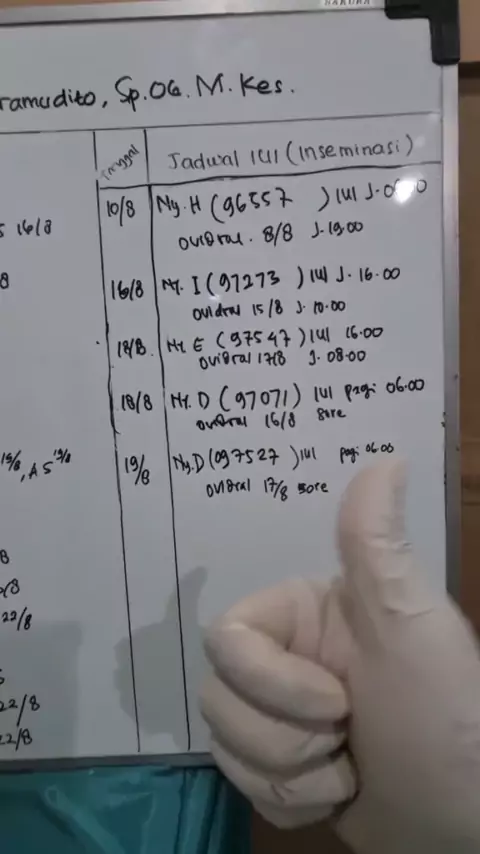 SAKURA
ramudito, Sp.OG. M.Kes.
Tanggal
Jadwal IUI (Inseminasi)
10/8 Ny. H (96557 ) IUI J.
ovidrel. 8/8 J. 19.00
16/8 Ny. I (97273 ) IUI J. 16.00
ovidrel 15/8 J. 10.00
18/8. Ny. E (97547) IUI 16.00
ovidrel 17/8 J. 08.00
18/8 Ny. D (97071) IUI pagi 06.00
ovidrel 16/8 sore
19/8 Ny. D (097527 ) IUI pagi 06.00
ovidrel 17/8 sore
16/8
8
19/8, A5 19/8
8
/8
22/8
22/8
22/8